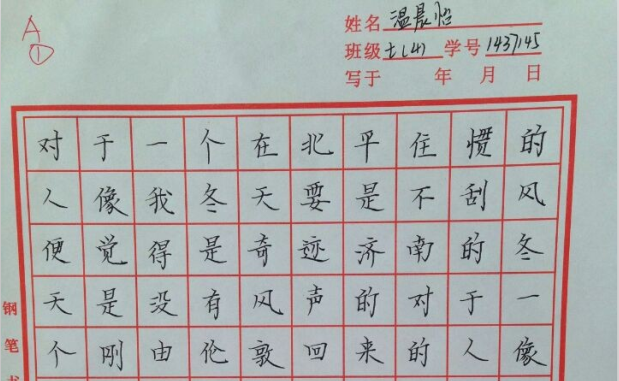 A
①
姓名 温晨怡
班级 七(4) 学号 1437145
写于 年 月 日
对于一个在北平住惯的
人像我冬天要是不刮风
便觉得是奇迹济南的冬
天是没有风声的对于一
个刚由伦敦回来的人像
钢笔